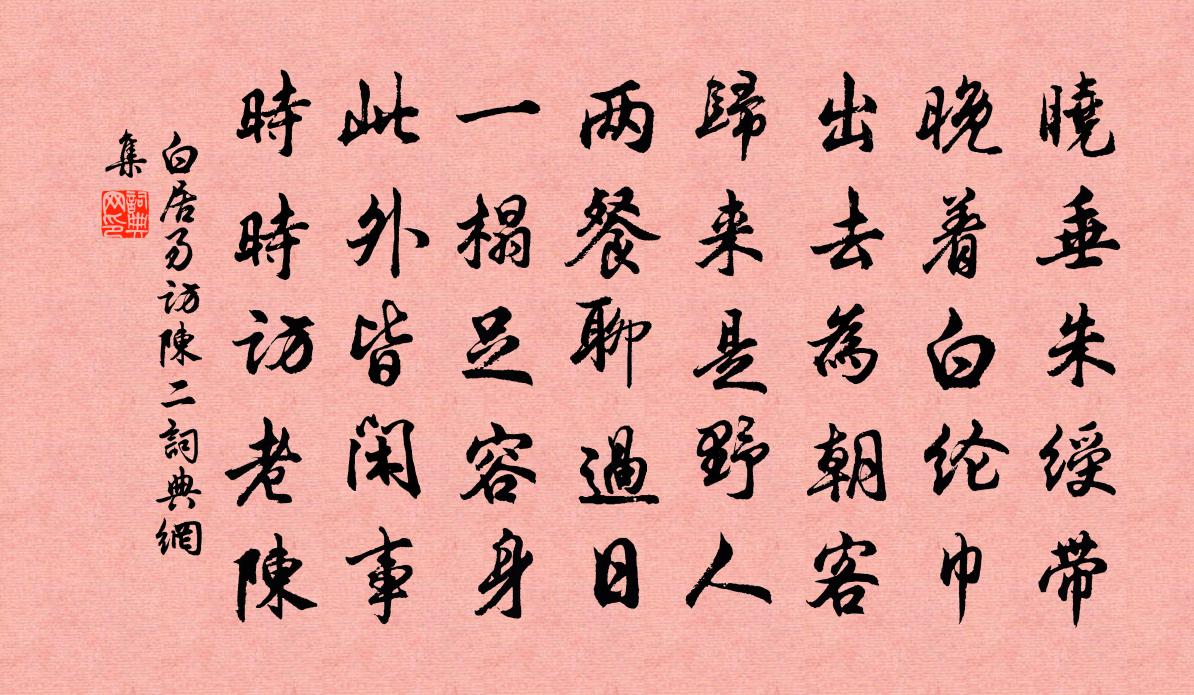 曉垂朱綬带
晚着白纶巾
出去為朝客
歸来是野人
两餐聊過日
一榻足容身
此外皆閑事
時時訪老陳
白居易訪陳二詞典網
集
詞典
网印